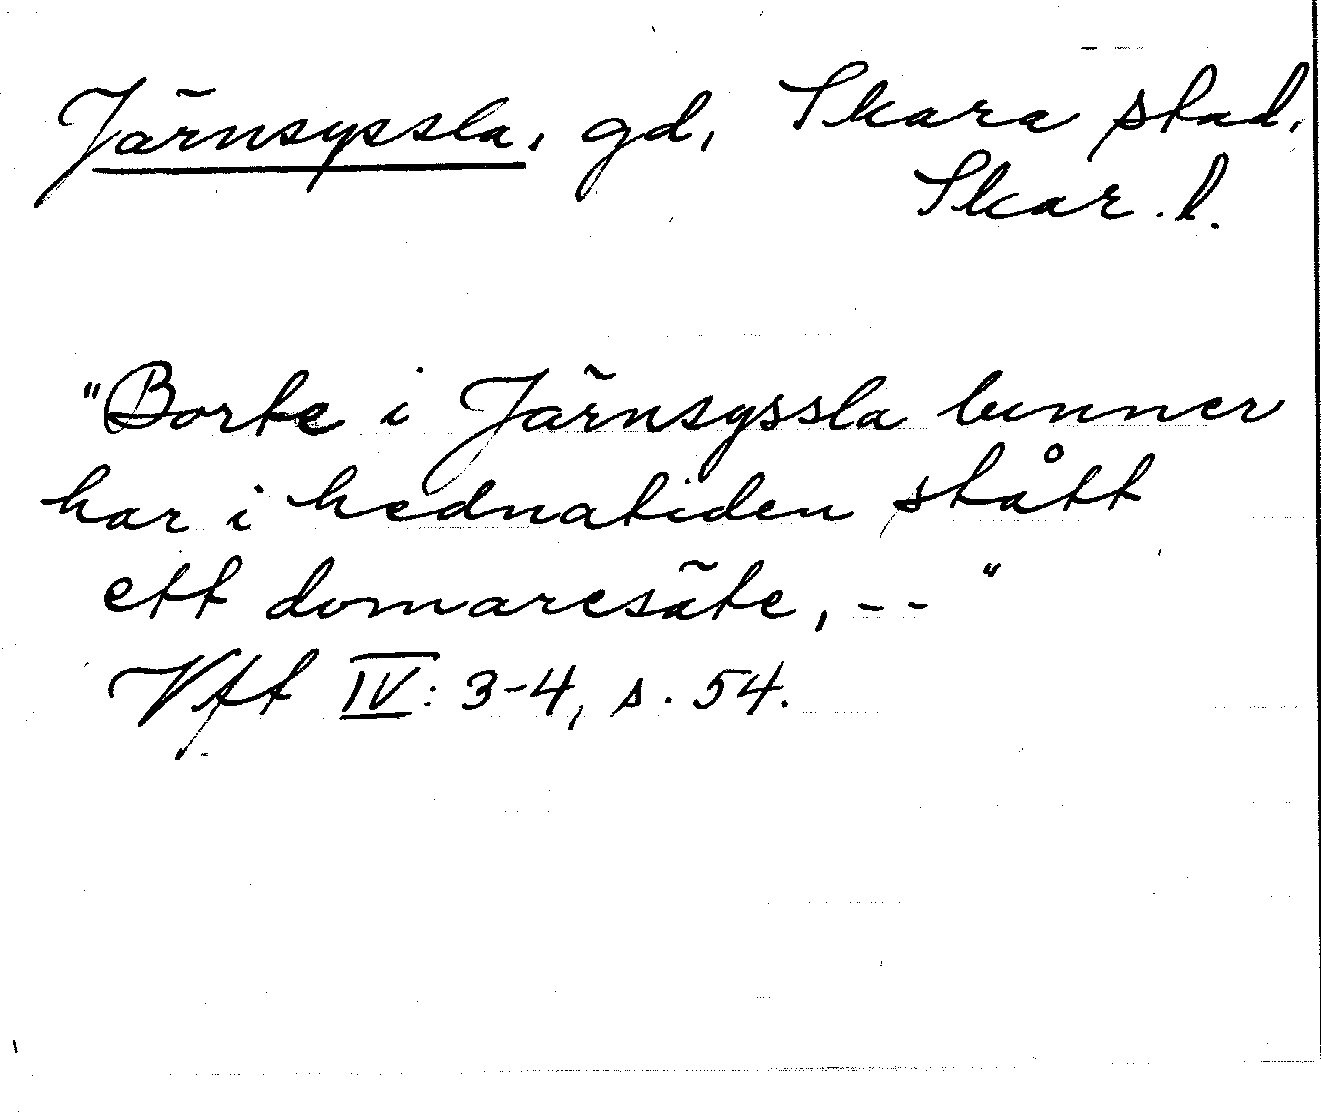 Järnsyssla, gd, Skara stad,
Skar. l.
"Borte i Järnsyssla lunner
har i hednatiden stått
ett domaresäte, -- "
Vft IV: 3-4, s. 54.